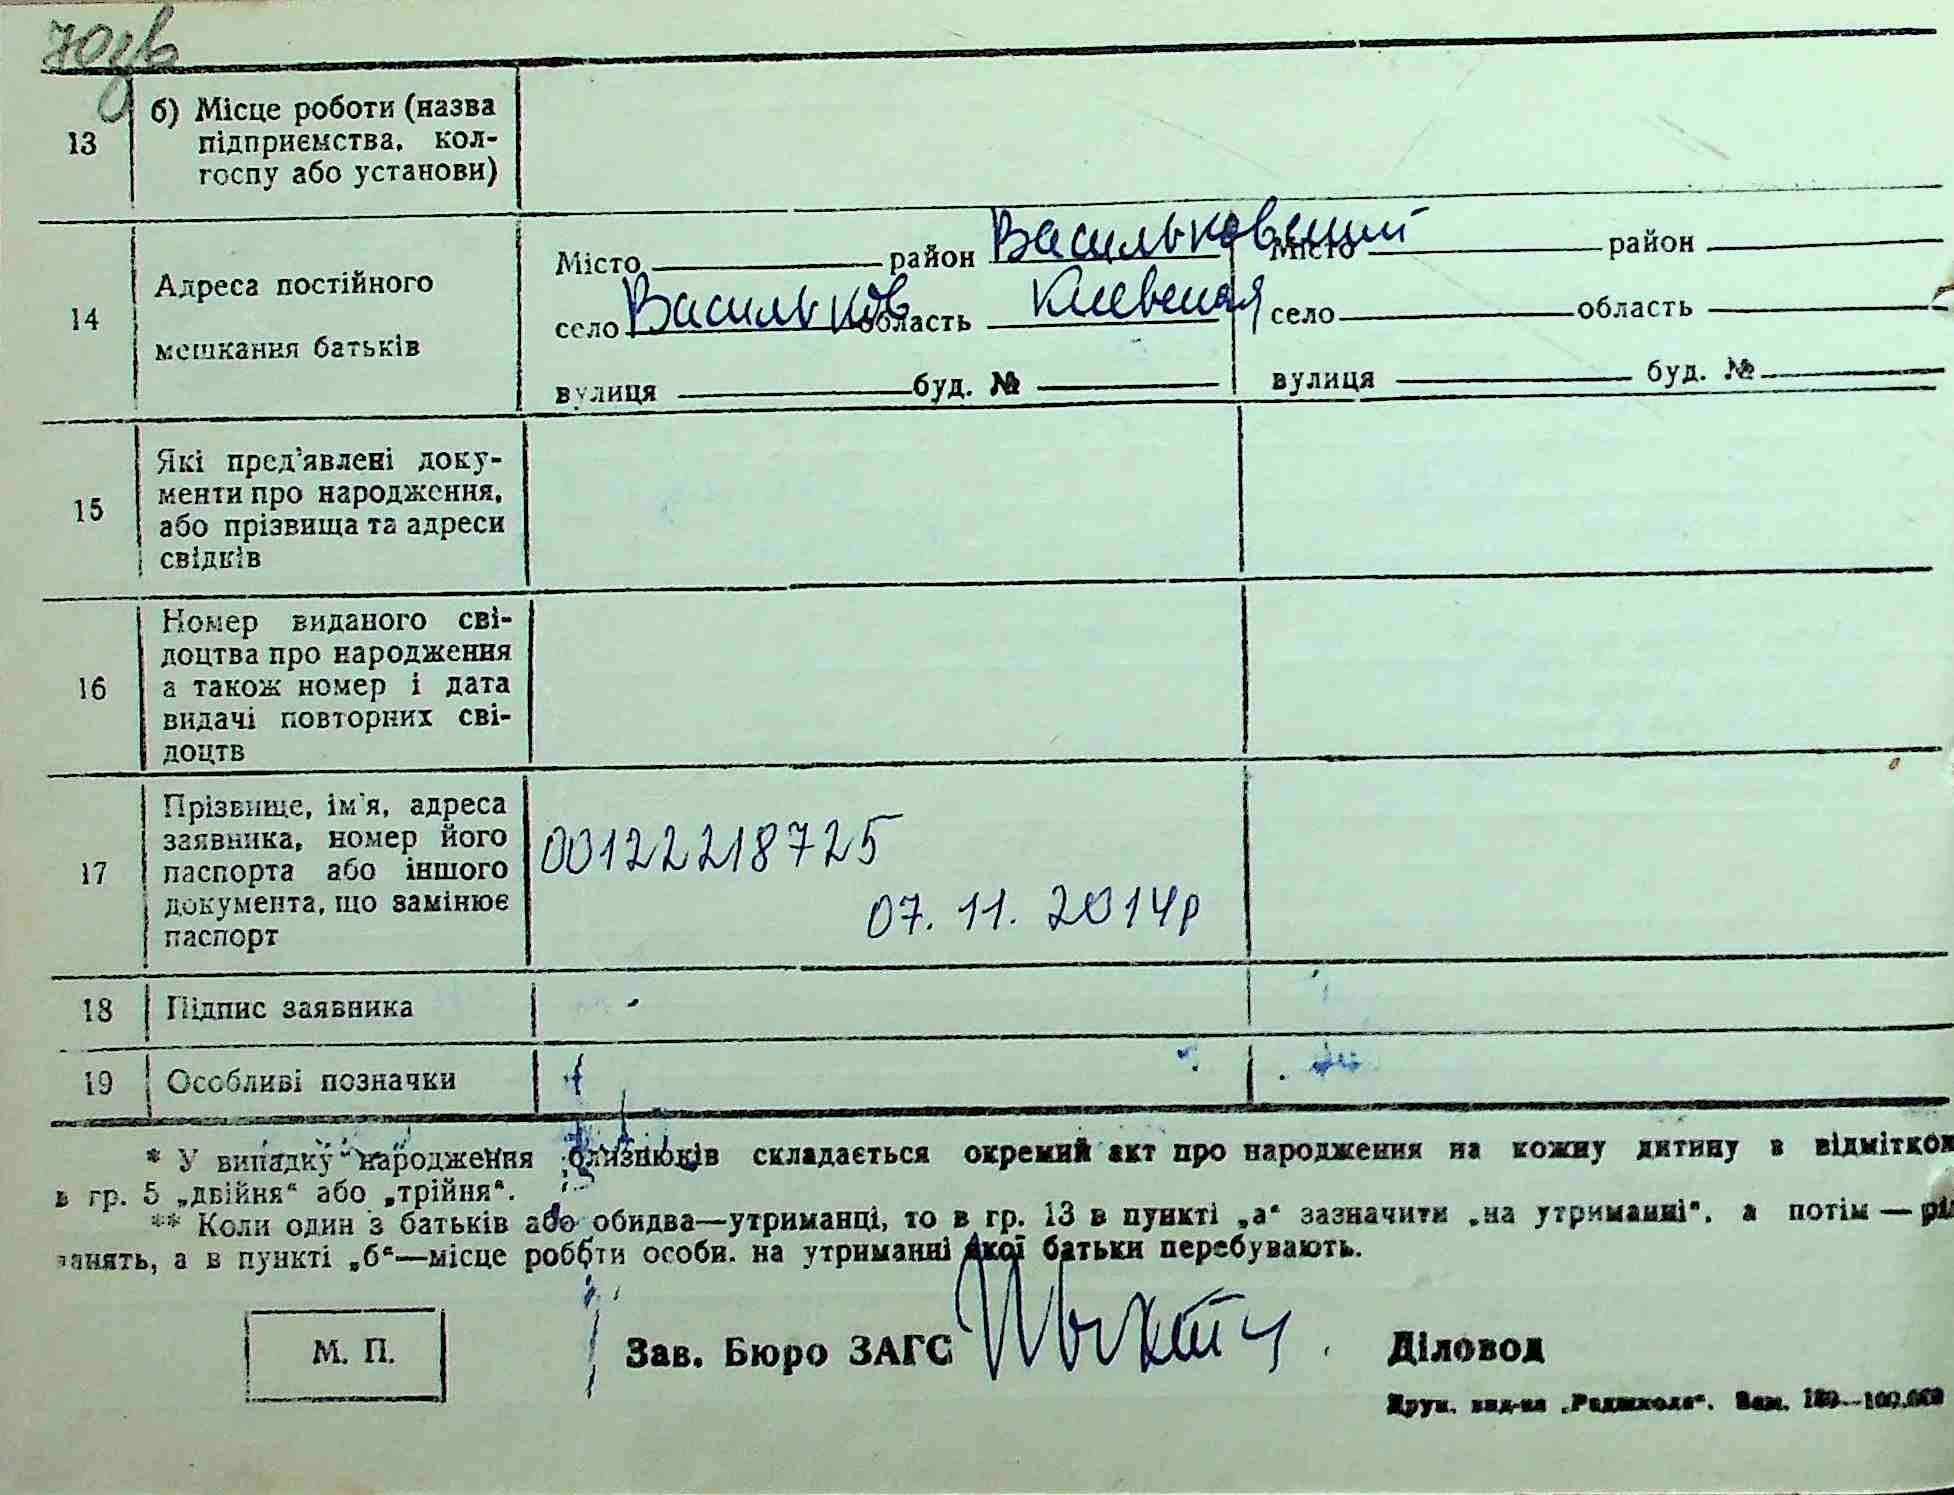 13
б) Місце роботи (назва
підприємства, кол-
госпу або установи)
14
Адреса постійного
мешкання батьків
Місто район Васильковский
село Васильков область Киевская
вулиця буд. №
Місто район
село область
вулиця буд. №
15
Які пред'явлені доку-
менти про народження,
або прізвища та адреси
свідків
16
Номер виданого сві-
доцтва про народження
а також номер і дата
видачі повторних сві-
доцтв
17
Прізвище, ім'я, адреса
заявника, номер його
паспорта або іншого
документа, що замінює
паспорт
00122218725
07. 11. 2014р
18
Підпис заявника
19
Особливі позначки
* У випадку народження близнюків складається окремий акт про народження на кожну дитину в відміткою
в гр. 5 „двійня“ або „трійня“.
** Коли один з батьків або обидва—утриманці, то в гр. 13 в пункті „а“ зазначити „на утриманні“, а потім —
занять, а в пункті „б“—місце роботи особи, на утриманні якої батьки перебувають.
М. П.
Зав. Бюро ЗАГС
Діловод
Друк. вид-ва „Радшкола“. Зам.